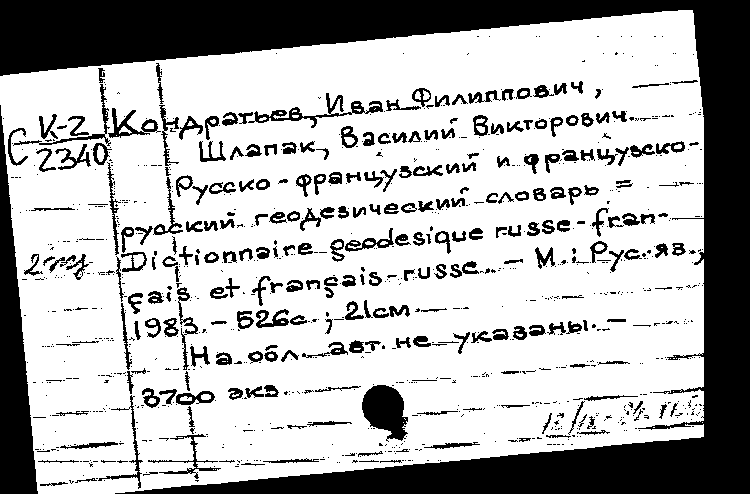 С К-2 Кондратьев, Иван Филиппович,
2340 Шлапак, Василий Викторович.
Русско-французский и французско-
русский геодезический словарь =
2 экз Dictionnaire geodesique russe-fran-
çais et français-russe. – М.: Рус.яз.,
1983. – 526с.; 21см.
На обл. авт. не указаны. –
3700 экз.